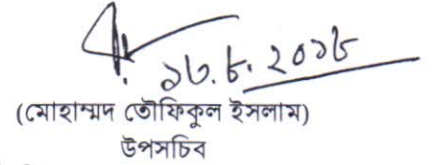 ১৩.৮.২০১৮
(মোহাম্মদ তৌফিকুল ইসলাম)
উপসচিব